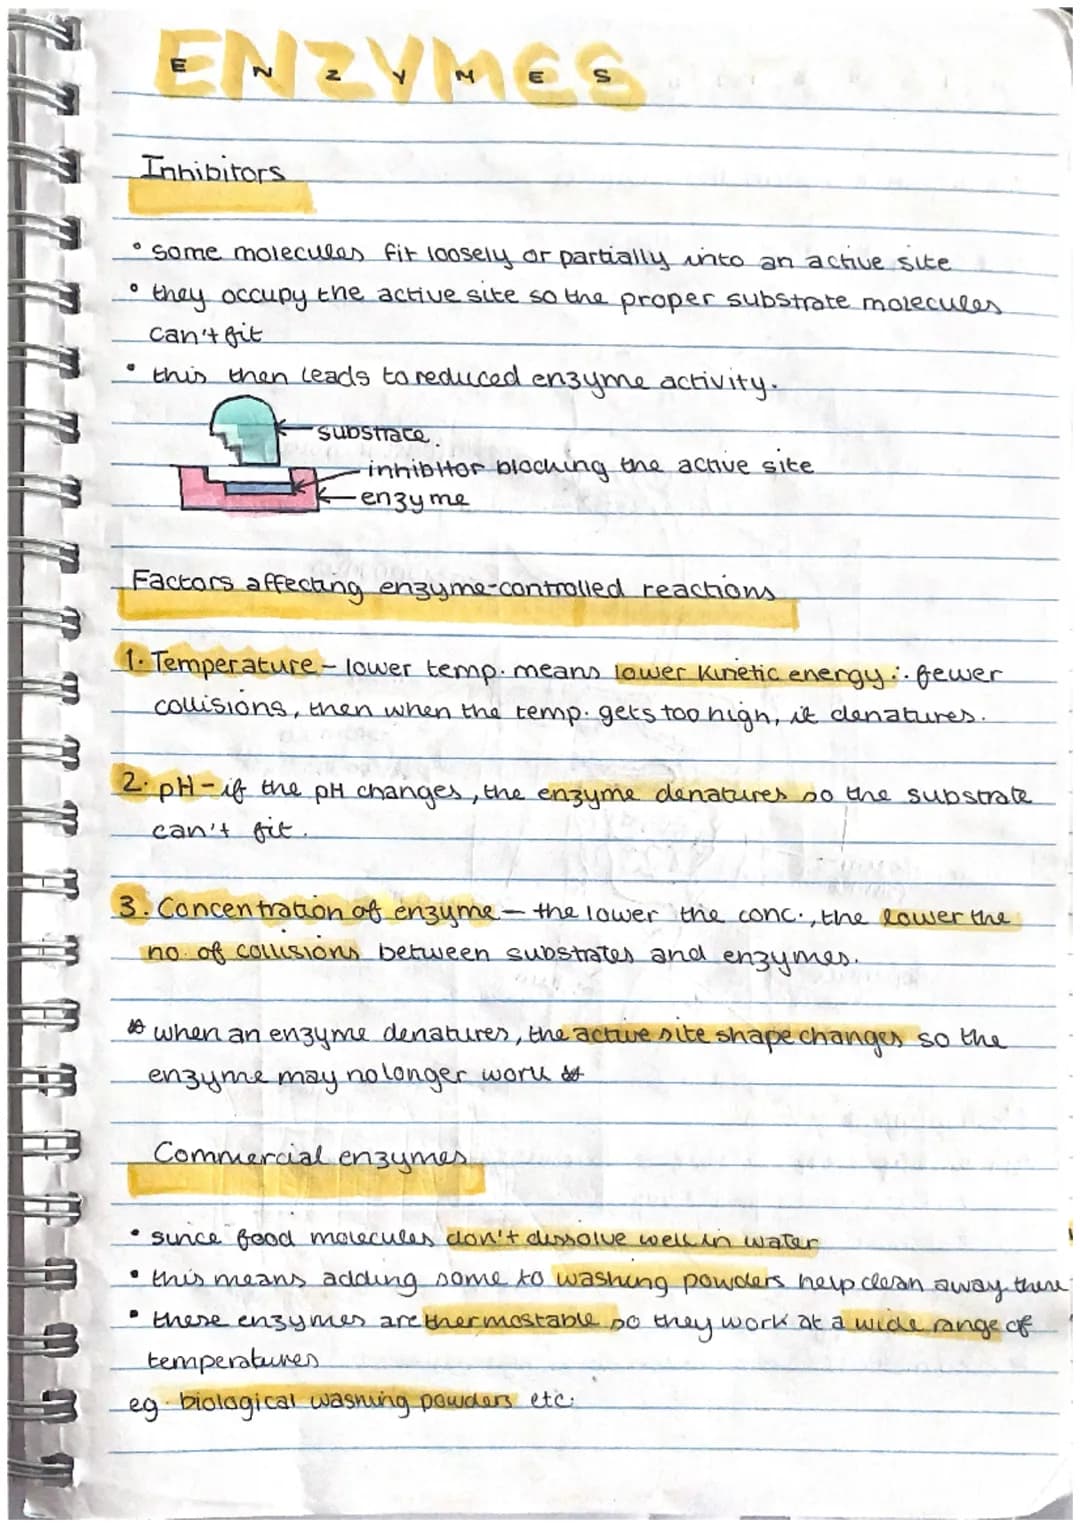 ENZYMES
E N Z Y M E S
Inhibitors
• some molecules fit loosely or partially into an active site
• they occupy the active site so the proper substrate molecules
can't fit
• this then leads to reduced enzyme activity.
substrate.
inhibitor blocking the active site
enzyme
Factors affecting enzyme-controlled reactions
1. Temperature - lower temp. means lower kinetic energy ∴ fewer
collisions, then when the temp. gets too high, it denatures.
2. pH - if the pH changes, the enzyme denatures so the substrate
can't fit.
3. Concentration of enzyme - the lower the conc., the lower the
no. of collisions between substrates and enzymes.
☆ when an enzyme denatures, the active site shape changes so the
enzyme may no longer work ☆
Commercial enzymes
• since food molecules don't dissolve well in water
• this means adding some to washing powders help clean away there
• these enzymes are thermostable so they work at a wide range of
temperatures
eg. biological washing powders etc.